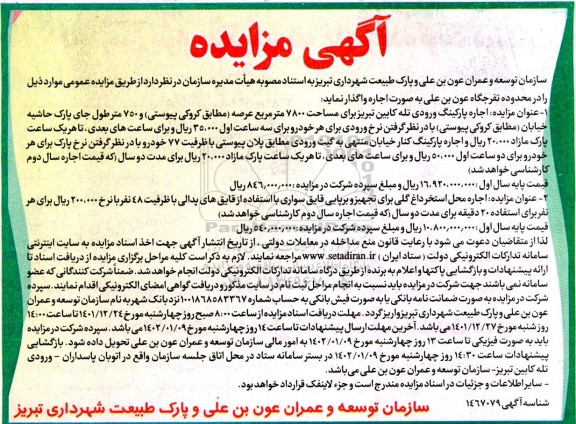 آگهی مزایده
سازمان توسعه و عمران عون بن علی و پارک طبیعت شهرداری تبریز به استناد مصوبه هیأت مدیره سازمان در نظر دارد از طریق مزایده عمومی موارد ذیل
را در محدوده تفرجگاه عون بن علی به صورت اجاره واگذار نماید:
۱-عنوان مزایده: اجاره پارکینگ ورودی تله کابین تبریز برای مساحت ۷۸۰۰ متر مربع عرصه (مطابق کروکی پیوستی) و ۷۵۰ متر طول جای پارک حاشیه
خیابان (مطابق کروکی پیوستی) با در نظر گرفتن نرخ ورودی برای هر خودرو برای سه ساعت اول ۳۵.۰۰۰ ریال و برای ساعت های بعدی، تا هر یک ساعت
پارک مازاد ۲۰.۰۰۰ ریال و اجاره پارکینگ کنار خیابان منتهی به گیت ورودی مطابق پلان پیوستی با ظرفیت ۷۷ خودرو با در نظر گرفتن نرخ پارک برای هر
خودرو برای دو ساعت اول ۵۰.۰۰۰ ریال و برای ساعت های بعدی، تا هر یک ساعت پارک مازاد ۲۰.۰۰۰ ریال برای مدت دو سال (که قیمت اجاره سال دوم
کارشناسی خواهد شد)
قیمت پایه سال اول: ۱۶.۹۲۰.۰۰۰.۰۰۰ ریال و مبلغ سپرده شرکت در مزایده: ۸۴۶.۰۰۰.۰۰۰ ریال
۲- عنوان مزایده: اجاره محل استخر داغ گلی برای تجهیز و برپایی قایق سواری با استفاده از قایق های پدالی با ظرفیت ۴۸ نفر با نرخ ۲۰۰.۰۰۰ ریال برای هر
نفر برای استفاده ۲۰ دقیقه برای مدت دو سال (که قیمت اجاره سال دوم کارشناسی خواهد شد)
قیمت پایه سال اول: ۱۰.۸۰۰.۰۰۰.۰۰۰ ریال و مبلغ سپرده شرکت در مزایده: ۵۴۰.۰۰۰.۰۰۰ ریال
لذا از متقاضیان دعوت می شود با رعایت قانون منع مداخله در معاملات دولتی، از تاریخ انتشار آگهی جهت اخذ اسناد مزایده به سایت اینترنتی
سامانه تدارکات الکترونیکی دولت (ستاد ایران) www.setadiran.ir مراجعه نمایند. لازم به ذکر است کلیه مراحل برگزاری مزایده از دریافت اسناد تا
ارائه پیشنهادات و بازگشایی پاکتها و اعلام به برنده از طریق درگاه سامانه تدارکات الکترونیکی دولت انجام خواهد شد. ضمناً شرکت کنندگانی که عضو
سامانه نمی باشند جهت شرکت در مزایده باید نسبت به انجام مراحل ثبت نام در سایت مذکور و دریافت گواهی امضای الکترونیکی اقدام نمایند. سپرده
شرکت در مزایده به صورت ضمانت نامه بانکی یا به صورت فیش بانکی به حساب شماره ۱۰۰۱۸۶۸۵۸۳۳۶۷ نزد بانک شهر به نام سازمان توسعه و عمران
عون بن علی و پارک طبیعت شهرداری تبریز واریز گردد. مهلت دریافت اسناد مزایده از ساعت ۸:۰۰ صبح روز چهارشنبه مورخ ۱۴۰۱/۱۲/۲۴ تا ساعت ۱۴:۰۰
روز شنبه مورخ ۱۴۰۱/۱۲/۲۷ می باشد. آخرین مهلت ارسال پیشنهادات تا ساعت ۱۴ روز چهارشنبه مورخ ۱۴۰۲/۰۱/۰۹ می باشد. سپرده شرکت در مزایده
باید به صورت فیزیکی تا ساعت ۱۳ روز چهارشنبه مورخ ۱۴۰۲/۰۱/۰۹ به امور مالی سازمان توسعه و عمران عون بن علی تحویل داده شود. بازگشایی
پیشنهادات ساعت ۱۴:۳۰ روز چهارشنبه مورخ ۱۴۰۲/۰۱/۰۹ در بستر سامانه ستاد در محل اتاق جلسه سازمان واقع در اتوبان پاسداران - ورودی
تله کابین تبریز- سازمان توسعه و عمران عون بن علی می باشد.
- سایر اطلاعات و جزئیات در اسناد مزایده مندرج است و جزء لاینفک قرارداد خواهد بود.
شناسه آگهی ۱۴۶۷۰۷۹
سازمان توسعه و عمران عون بن علی و پارک طبیعت شهرداری تبریز